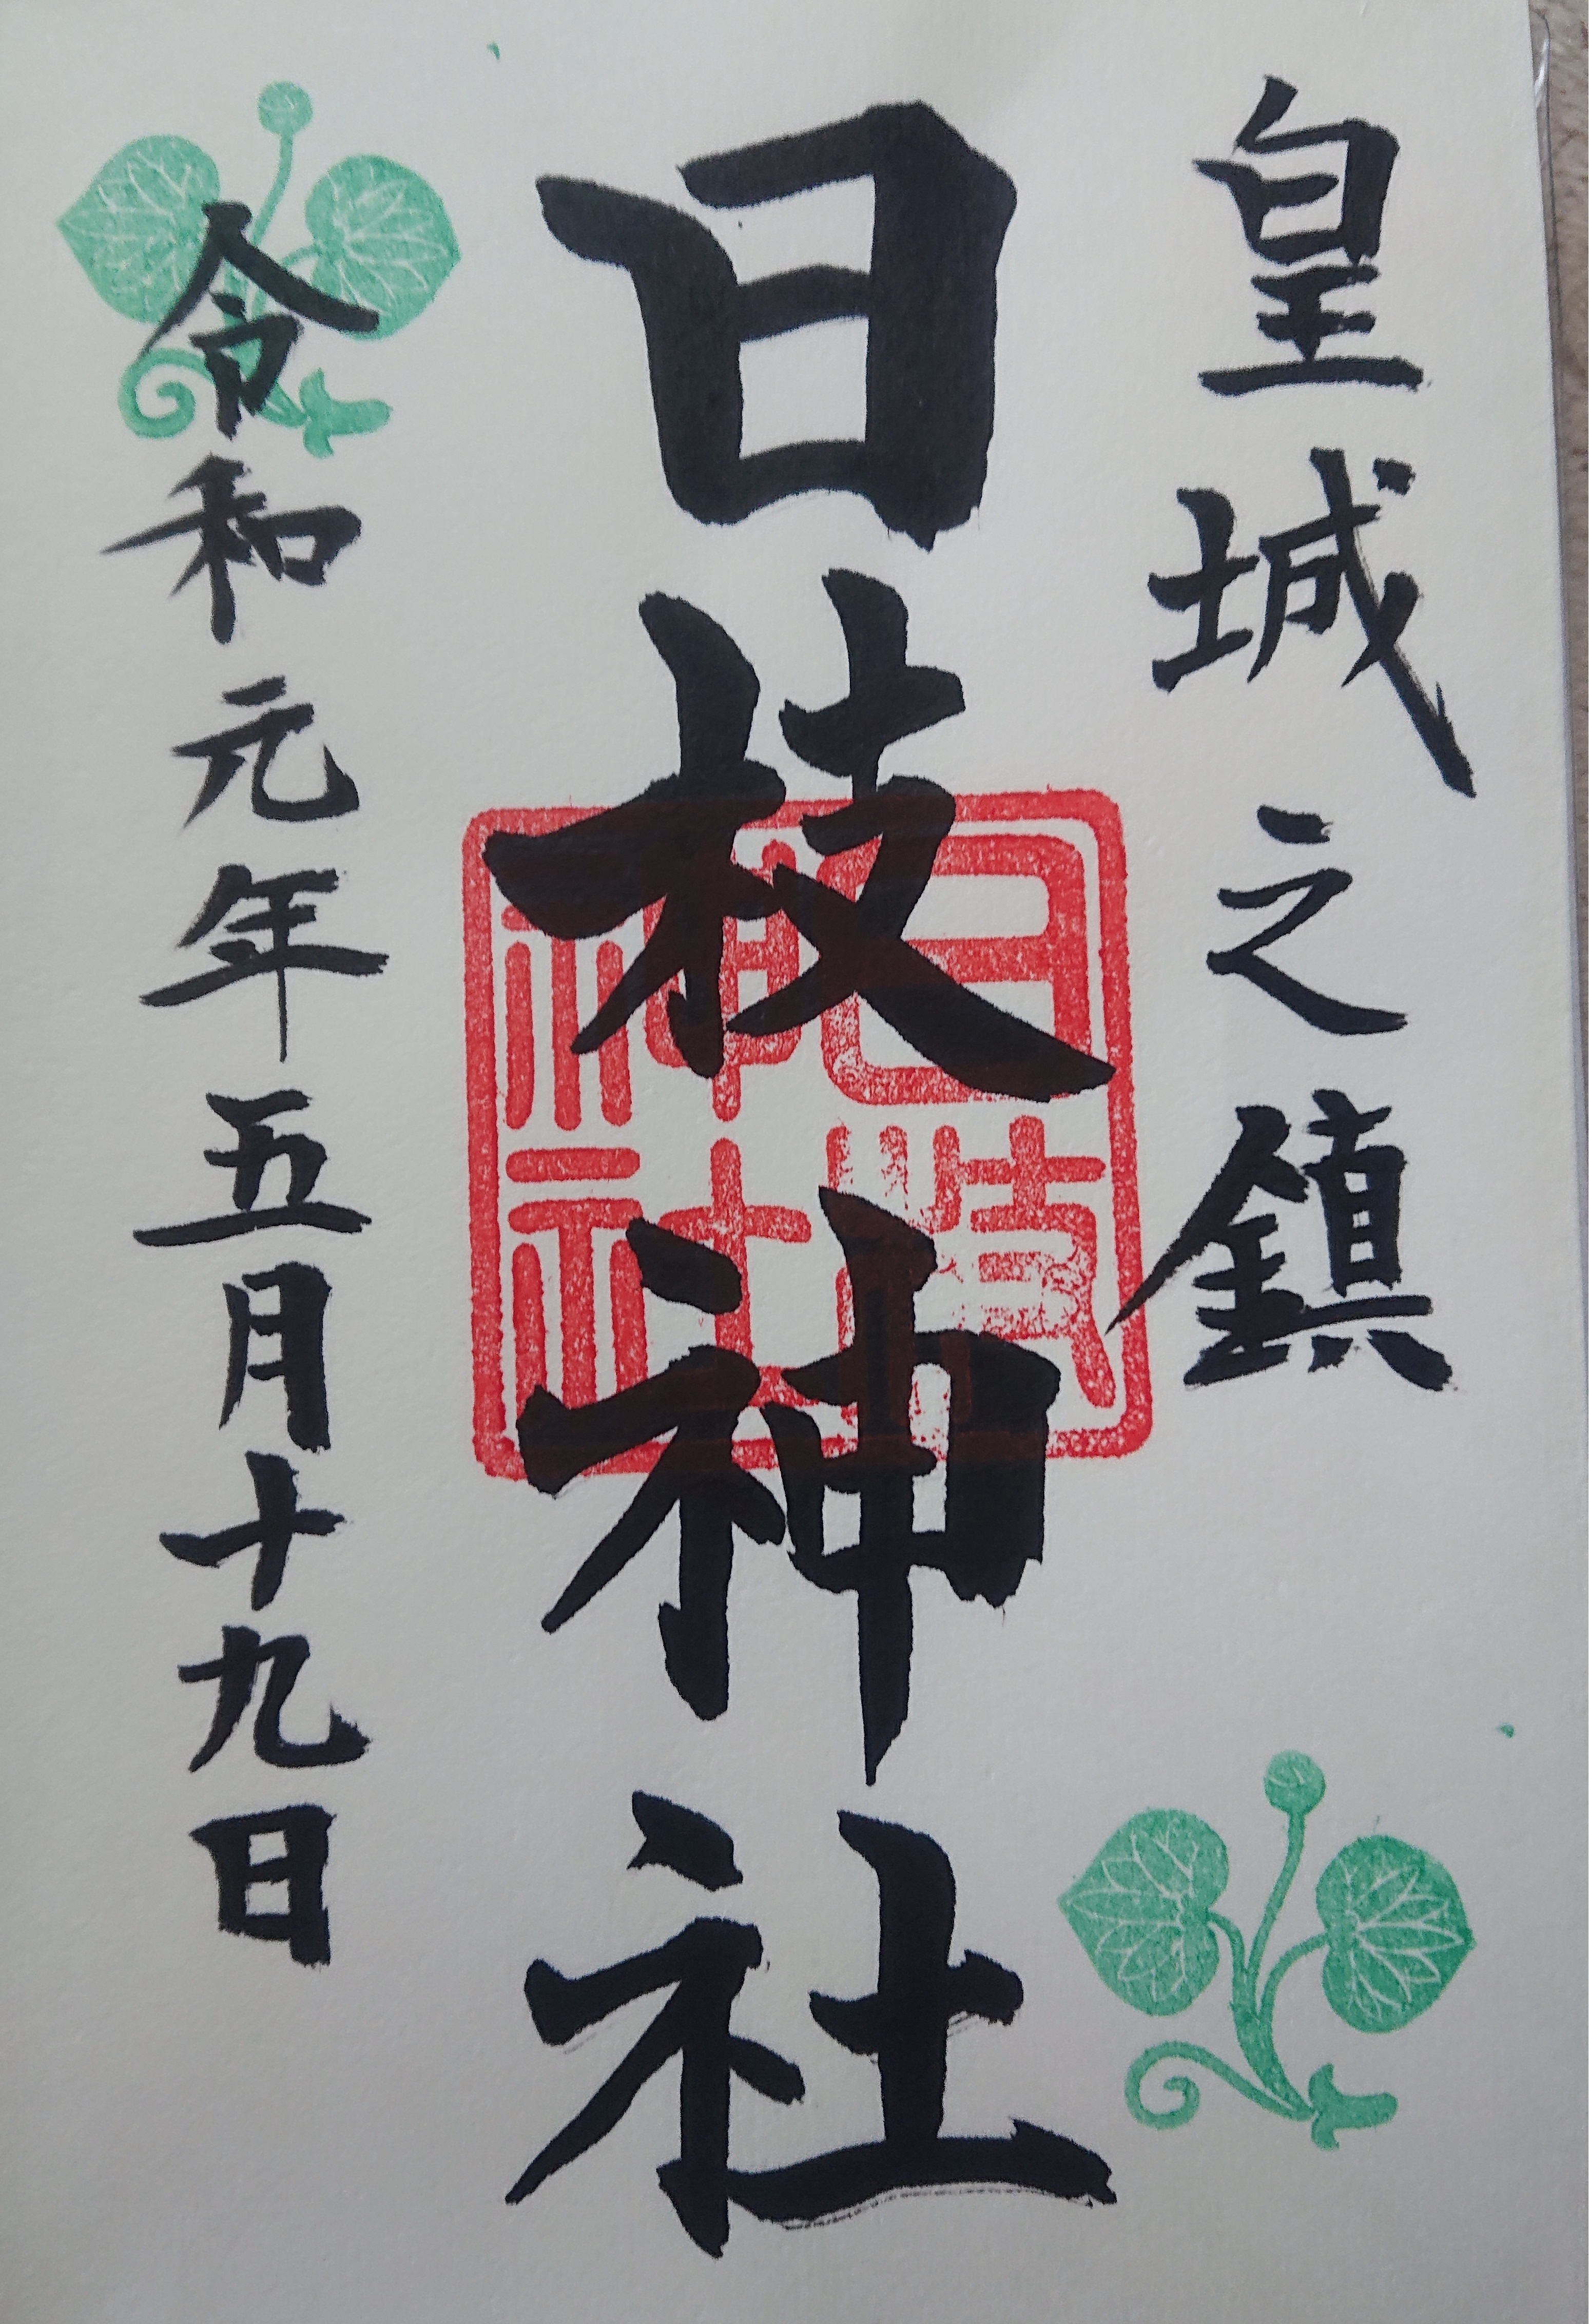 皇城之鎮
日枝神社
日枝神社
令和元年五月十九日